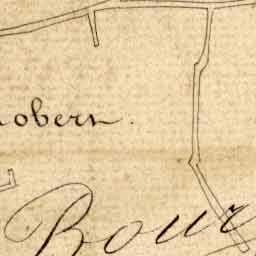 obern.
Bour